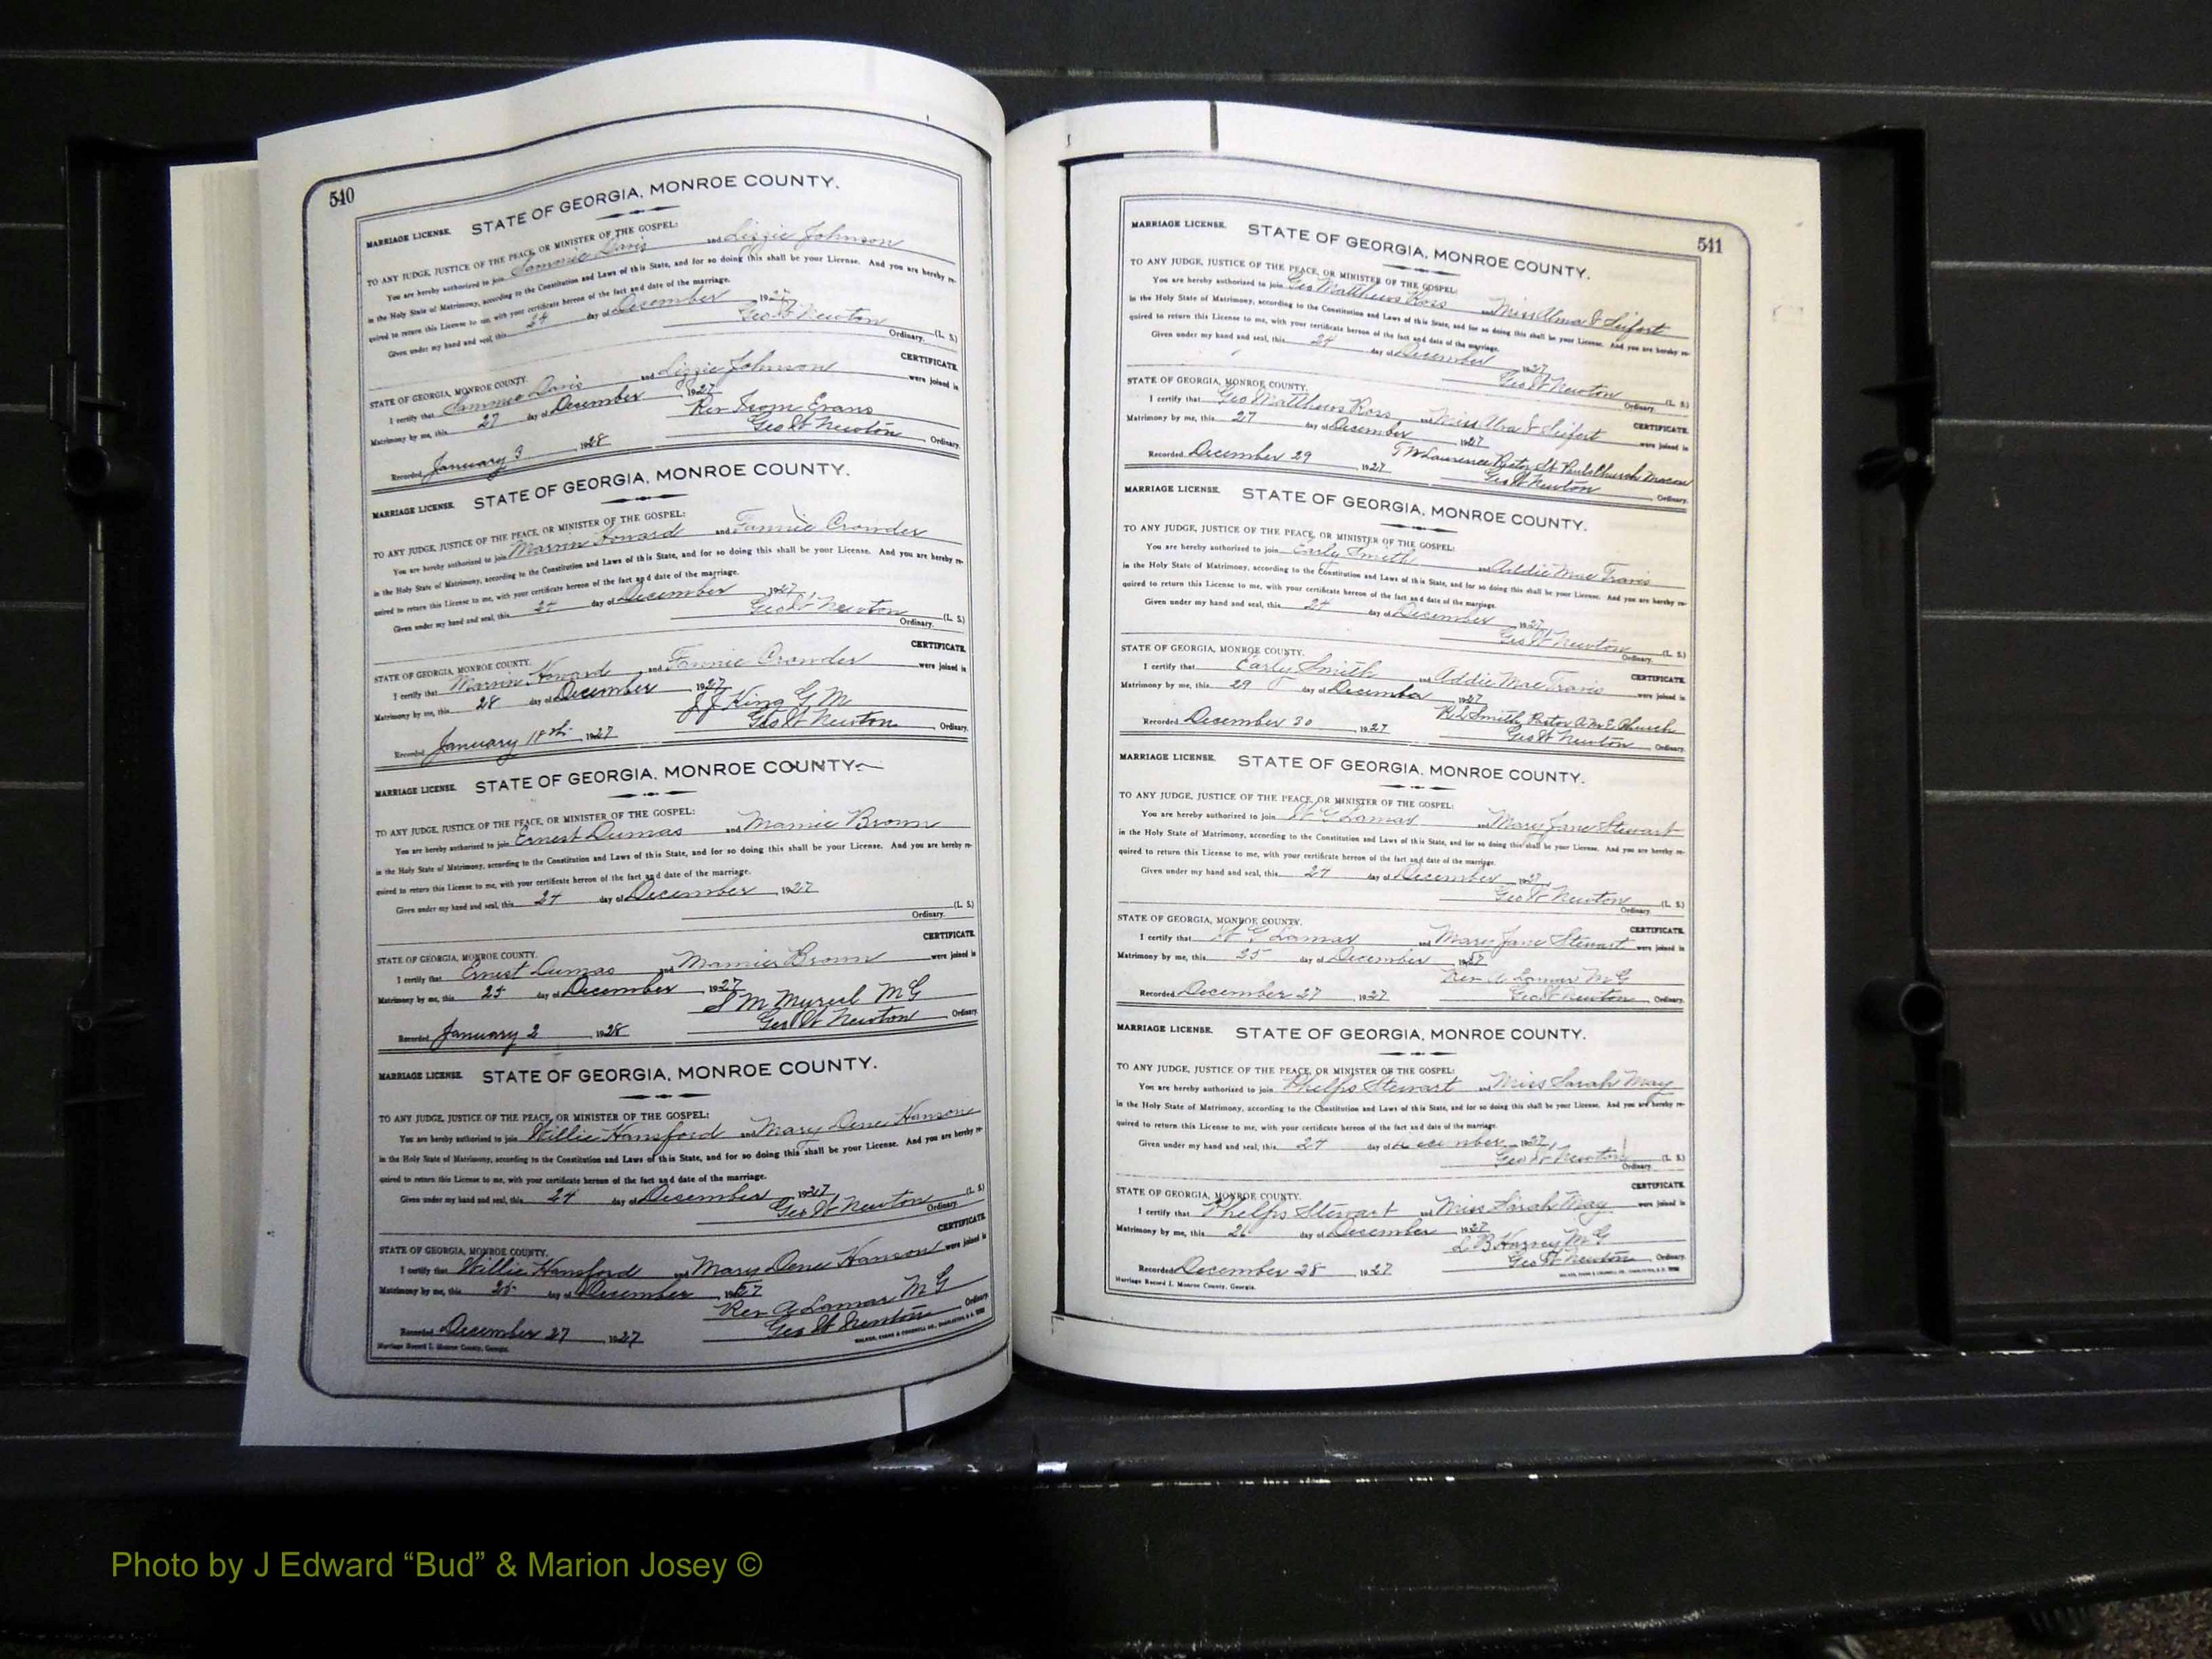 540
STATE OF GEORGIA, MONROE COUNTY.
MARRIAGE LICENSE.
TO ANY JUDGE, JUSTICE OF THE PEACE, OR MINISTER OF THE GOSPEL:
You are hereby authorized to join Sammie Davis and Lizzie Johnson
in the Holy State of Matrimony, according to the Constitution and Laws of this State, and for so doing this shall be your License. And you are hereby re-
quired to return this License to me, with your certificate hereon of the fact and date of the marriage.
Given under my hand and seal, this 24 day of December 1927
Geo W Newton (L. S.)
Ordinary.
CERTIFICATE.
STATE OF GEORGIA, MONROE COUNTY.
I certify that Sammie Davis and Lizzie Johnson were joined in
Matrimony by me, this 27 day of December 1927
Rev Evans
Recorded January 3 1928 Geo W Newton Ordinary.
MARRIAGE LICENSE. STATE OF GEORGIA, MONROE COUNTY.
TO ANY JUDGE, JUSTICE OF THE PEACE, OR MINISTER OF THE GOSPEL:
You are hereby authorized to join Marvin Howard and Fannie Crowder
in the Holy State of Matrimony, according to the Constitution and Laws of this State, and for so doing this shall be your License. And you are hereby re-
quired to return this License to me, with your certificate hereon of the fact and date of the marriage.
Given under my hand and seal, this 24 day of December 1927
Geo W Newton (L. S.)
Ordinary.
CERTIFICATE.
STATE OF GEORGIA, MONROE COUNTY.
I certify that Marvin Howard and Fannie Crowder were joined in
Matrimony by me, this 28 day of December 1927
J J King G M
Recorded January 18th 1927 Geo W Newton Ordinary.
MARRIAGE LICENSE. STATE OF GEORGIA, MONROE COUNTY.
TO ANY JUDGE, JUSTICE OF THE PEACE, OR MINISTER OF THE GOSPEL:
You are hereby authorized to join Ernest Dumas and Mamie Brown
in the Holy State of Matrimony, according to the Constitution and Laws of this State, and for so doing this shall be your License. And you are hereby re-
quired to return this License to me, with your certificate hereon of the fact and date of the marriage.
Given under my hand and seal, this 24 day of December, 1927
(L. S.)
Ordinary.
CERTIFICATE.
STATE OF GEORGIA, MONROE COUNTY.
I certify that Ernest Dumas and Mamie Brown were joined in
Matrimony by me, this 25 day of December, 1927
S M M G
Recorded January 2, 1928 Geo W Newton Ordinary.
MARRIAGE LICENSE. STATE OF GEORGIA, MONROE COUNTY.
TO ANY JUDGE, JUSTICE OF THE PEACE, OR MINISTER OF THE GOSPEL:
You are hereby authorized to join Willie Hansford and Mary Dene Hanson
in the Holy State of Matrimony, according to the Constitution and Laws of this State, and for so doing this shall be your License. And you are hereby re-
quired to return this License to me, with your certificate hereon of the fact and date of the marriage.
Given under my hand and seal, this 24 day of December, 1927
Geo W Newton (L. S.)
Ordinary.
CERTIFICATE.
STATE OF GEORGIA, MONROE COUNTY.
I certify that Willie Hansford and Mary Dene Hanson were joined in
Matrimony by me, this 25 day of December 1927
Rev A Lamar M G
Recorded December 27, 1927 Geo W Newton Ordinary.
Marriage Record I. Monroe County, Georgia.
541
MARRIAGE LICENSE. STATE OF GEORGIA, MONROE COUNTY.
TO ANY JUDGE, JUSTICE OF THE PEACE, OR MINISTER OF THE GOSPEL:
You are hereby authorized to join Geo Matthews Ross and Miss Seifert
in the Holy State of Matrimony, according to the Constitution and Laws of this State, and for so doing this shall be your License. And you are hereby re-
quired to return this License to me, with your certificate hereon of the fact and date of the marriage.
Given under my hand and seal, this 24 day of December 1927
Geo W Newton (L. S.)
Ordinary.
STATE OF GEORGIA, MONROE COUNTY. CERTIFICATE.
I certify that Geo Matthews Ross and Miss Seifert were joined in
Matrimony by me, this 27 day of December 1927
Lawrence St Pauls Church Macon
Recorded December 29, 1927 Geo W Newton Ordinary.
MARRIAGE LICENSE. STATE OF GEORGIA, MONROE COUNTY.
TO ANY JUDGE, JUSTICE OF THE PEACE, OR MINISTER OF THE GOSPEL:
You are hereby authorized to join Early Smith and Addie Mae Travis
in the Holy State of Matrimony, according to the Constitution and Laws of this State, and for so doing this shall be your License. And you are hereby re-
quired to return this License to me, with your certificate hereon of the fact and date of the marriage.
Given under my hand and seal, this 24 day of December 1927
Geo W Newton (L. S.)
Ordinary.
STATE OF GEORGIA, MONROE COUNTY. CERTIFICATE.
I certify that Early Smith and Addie Mae Travis were joined in
Matrimony by me, this 29 day of December 1927
R L Smith, Pastor A M E Church
Recorded December 30, 1927 Geo W Newton Ordinary.
MARRIAGE LICENSE. STATE OF GEORGIA, MONROE COUNTY.
TO ANY JUDGE, JUSTICE OF THE PEACE, OR MINISTER OF THE GOSPEL:
You are hereby authorized to join W G Lamar and Mary Jane Stewart
in the Holy State of Matrimony, according to the Constitution and Laws of this State, and for so doing this shall be your License. And you are hereby re-
quired to return this License to me, with your certificate hereon of the fact and date of the marriage.
Given under my hand and seal, this 24 day of December 1927
Geo W Newton (L. S.)
Ordinary.
STATE OF GEORGIA, MONROE COUNTY. CERTIFICATE.
I certify that W G Lamar and Mary Jane Stewart were joined in
Matrimony by me, this 25 day of December 1927
Rev A Lamar M G
Recorded December 27, 1927 Geo W Newton Ordinary.
MARRIAGE LICENSE. STATE OF GEORGIA, MONROE COUNTY.
TO ANY JUDGE, JUSTICE OF THE PEACE, OR MINISTER OF THE GOSPEL:
You are hereby authorized to join Phelps Stewart and Miss Sarah May
in the Holy State of Matrimony, according to the Constitution and Laws of this State, and for so doing this shall be your License. And you are hereby re-
quired to return this License to me, with your certificate hereon of the fact and date of the marriage.
Given under my hand and seal, this 24 day of December 1927
Geo W Newton (L. S.)
Ordinary.
CERTIFICATE.
STATE OF GEORGIA, MONROE COUNTY.
I certify that Phelps Stewart and Miss Sarah May were joined in
Matrimony by me, this 26 day of December, 1927
L B Harvey M G
Recorded December 28, 1927 Geo W Newton Ordinary.
Marriage Record I. Monroe County, Georgia.
Photo by J Edward “Bud” & Marion Josey ©